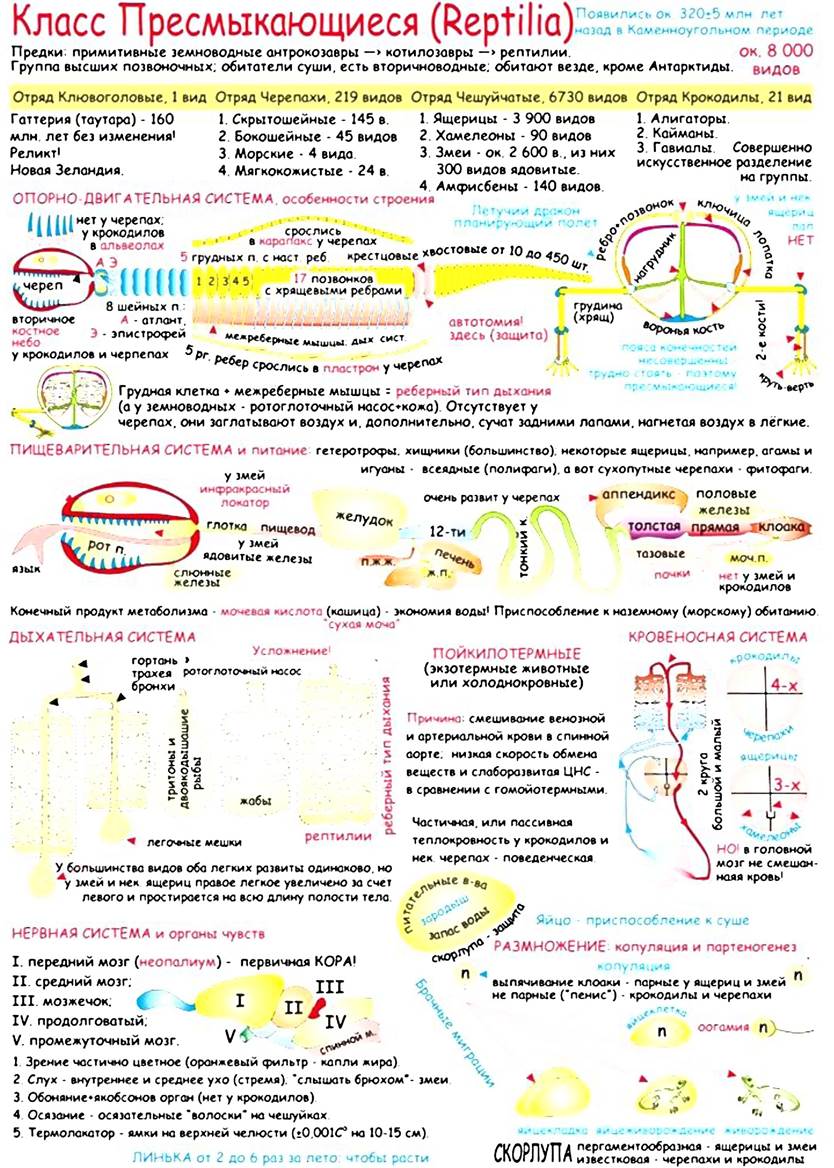 Класс Пресмыкающиеся (Reptilia)
Появились ок. 320±5 млн. лет
назад в Каменноугольном периоде
Предки: примитивные земноводные антрокозавры —> котилозавры —> рептилии.
ок. 8 000
видов
Группа высших позвоночных; обитатели суши, есть вторичноводные; обитают везде, кроме Антарктиды.
Отряд Клювоголовые, 1 вид
Гаттерия (таутара) - 160
млн. лет без изменения!
Реликт!
Новая Зеландия.
Отряд Черепахи, 219 видов
1. Скрытошейные - 145 в.
2. Бокошейные - 45 видов
3. Морские - 4 вида.
4. Мягкокожистые - 24 в.
Отряд Чешуйчатые, 6730 видов
1. Ящерицы - 3 900 видов
2. Хамелеоны - 90 видов
3. Змеи - ок. 2 600 в., из них
300 видов ядовитые.
4. Амфисбены - 140 видов.
Отряд Крокодилы, 21 вид
1. Алигаторы.
2. Кайманы.
3. Гавиалы. Совершенно
искусственное разделение
на группы.
ОПОРНО-ДВИГАТЕЛЬНАЯ СИСТЕМА, особенности строения
нет у черепах;
у крокодилов
в альвеолах
А Э
череп
вторичное
костное
небо
у крокодилов и черпепах
8 шейных п.:
А - атлант,
Э - эпистрофей
срослись
в карапакс у черепах
5 грудных п. с наст. реб.
1 2 3 4 5
17 позвонков
с хрящевыми ребрами
крестцовые
хвостовые от 10 до 450 шт.
межреберные мышцы. дых. сист.
5 рг. ребер срослись в пластрон у черепах
автотомия!
здесь (защита)
Летучий дракон
планирующий полет
ребро+позвонок
ключица
лопатка
нагрудник
грудина
(хрящ)
воронья кость
у змей и нек.
ящериц
лап
НЕТ
2-е кости!
круть-верть
пояса конечностей
несовершенны
трудно стоять - поэтому
пресмыкающиеся!
Грудная клетка + межреберные мышцы = реберный тип дыхания
(а у земноводных - ротоглоточный насос+кожа). Отсутствует у
черепах, они заглатывают воздух и, дополнительно, сучат задними лапами, нагнетая воздух в лёгкие.
ПИЩЕВАРИТЕЛЬНАЯ СИСТЕМА и питание: гетеротрофы, хищники (большинство), некоторые ящерицы, например, агамы и
игуаны - всеядные (полифаги), а вот сухопутные черепахи - фитофаги.
у змей
инфракрасный
локатор
глотка
пищевод
у змей
ядовитые железы
рот п.
язык
слюнные
железы
желудок
12-ти
п.ж.ж.
печень
ж.п.
очень развит у черепах
тонкий к.
аппендикс
половые
железы
толстая
прямая
клоака
тазовые
почки
моч.п.
нет у змей и
крокодилов
Конечный продукт метаболизма - мочевая кислота (кашица) - экономия воды! Приспособление к наземному (морскому) обитанию.
"сухая моча"
ДЫХАТЕЛЬНАЯ СИСТЕМА
гортань
трахея
бронхи
Усложнение!
ротоглоточный насос
тритоны и
двоякодышащие
рыбы
жабы
рептилии
реберный тип дыхания
легочные мешки
У большинства видов оба легких развиты одинаково, но
у змей и нек. ящериц правое легкое увеличено за счет
левого и простирается на всю длину полости тела.
ПОЙКИЛОТЕРМНЫЕ
(экзотермные животные
или холоднокровные)
Причина: смешивание венозной
и артериальной крови в спинной
аорте; низкая скорость обмена
веществ и слаборазвитая ЦНС -
в сравнении с гомойотермными.
Частичная, или пассивная
теплокровность у крокодилов и
нек. черепах - поведенческая.
КРОВЕНОСНАЯ СИСТЕМА
2 круга
большой и малый
крокодилы
4-х
черепахи
ящерицы
3-х
хамелеоны
НО! в головной
мозг не смешан-
наяя кровь!
НЕРВНАЯ СИСТЕМА и органы чувств
I. передний мозг (неопалиум) - первичная КОРА!
II. средний мозг;
III. мозжечок;
IV. продолговатый;
V. промежуточный мозг.
I
II
III
IV
V
спинной м.
1. Зрение частично цветное (оранжевый фильтр - капли жира).
2. Слух - внутреннее и среднее ухо (стремя). "слышать брюхом"- змеи.
3. Обоняние+якобсонов орган (нет у крокодилов).
4. Осязание - осязательные "волоски" на чешуйках.
5. Термолакатор - ямки на верхней челюсти (±0,001C° на 10-15 см).
ЛИНЬКА от 2 до 6 раз за лето; чтобы расти
питательные в-ва
зародыш
запас воды
скорлупа - защита
Яйцо - приспособление к суше
РАЗМНОЖЕНИЕ: копуляция и партеногенез
копуляция
n
выпячивание клоаки - парные у ящериц и змей
не парные ("пенис") - крокодилы и черепахи
n
Брачные миграции
яйцеклетка
n
оогамия
n
яйцекладка
яйцеживорождение
живорождение
СКОРЛУПА
пергаментообразная - ящерицы и змеи
известковая - черепахи и крокодилы